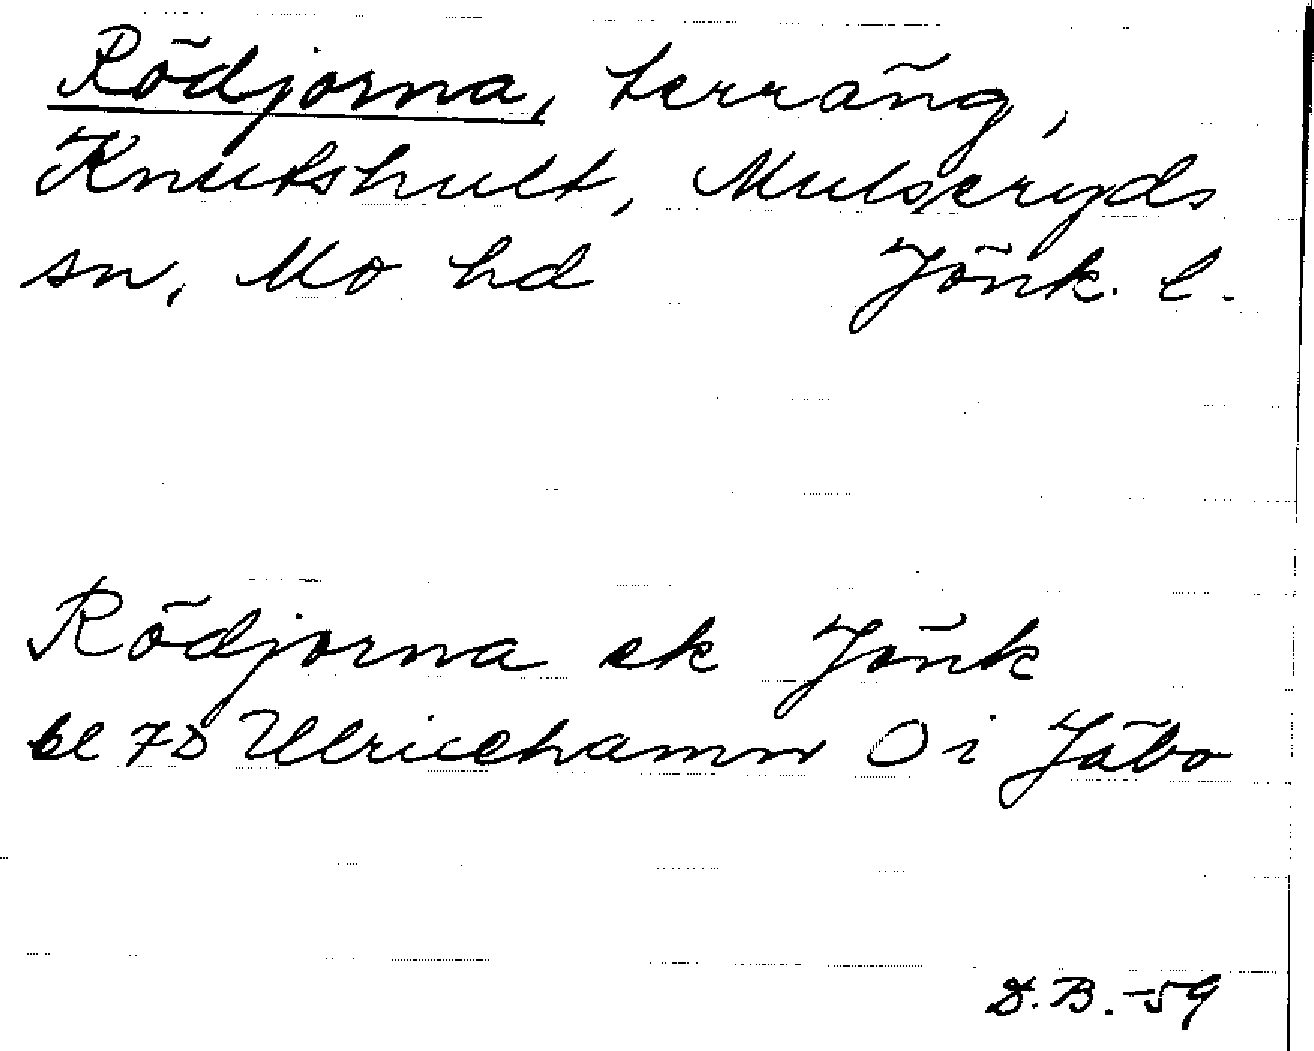 Rödjorna, terräng,
Knutshult, Mulseryds
sn, Mo hd Jönk. l.
Rödjorna ek Jönk
bl 7D Ulricehamn Ö i Jäbo
D.B.-59